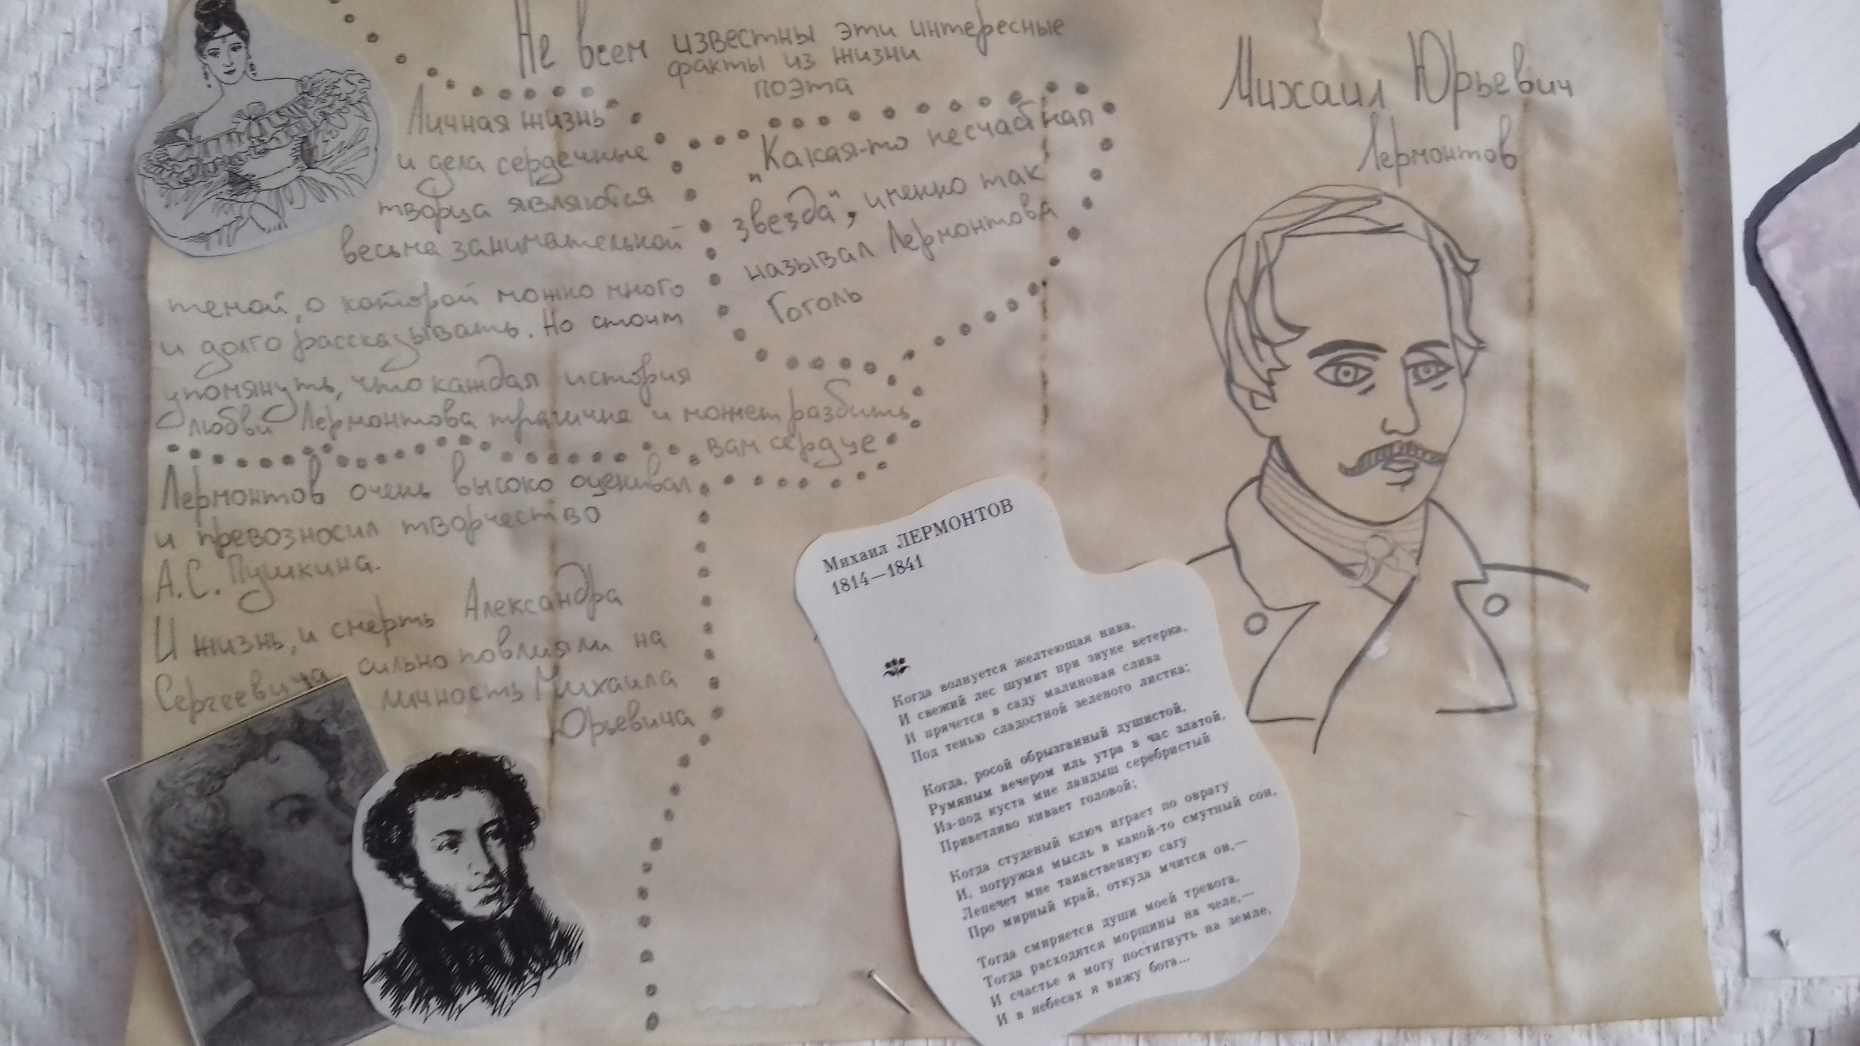 Не всем известны эти интересные
факты из жизни
поэта
Личная жизнь
и дела сердечные
творца являются
весьма занимательной
темой, о которой можно много
и долго рассказывать. Но стоит
упомянуть, что каждая история
любви Лермонтова трагична и может разбить
вам сердце
„Какая-то несчастная
звезда", именно так
называл Лермонтова
Гоголь
Лермонтов очень высоко оценивал
и превозносил творчество
А.С. Пушкина.
И жизнь, и смерть Александра
Сергеевича сильно повлияли на
личность Михаила
Юрьевича
Михаил Юрьевич
Лермонтов
Михаил ЛЕРМОНТОВ
1814—1841
Когда волнуется желтеющая нива,
И свежий лес шумит при звуке ветерка,
И прячется в саду малиновая слива
Под тенью сладостной зеленого листка;
Когда, росой обрызганный душистой,
Румяным вечером иль утра в час златой,
Из-под куста мне ландыш серебристый
Приветливо кивает головой;
Когда студеный ключ играет по оврагу
И, погружая мысль в какой-то смутный сон,
Лепечет мне таинственную сагу
Про мирный край, откуда мчится он,—
Тогда смиряется души моей тревога,
Тогда расходятся морщины на челе,—
И счастье я могу постигнуть на земле,
И в небесах я вижу бога...